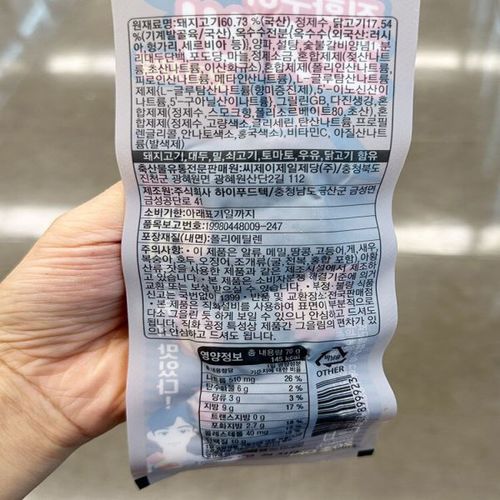 원재료명:돼지고기60.73 %(국산), 정제수, 닭고기17.54
%(기계발골육/국산), 옥수수전분(옥수수(외국산:러시
아,헝가리,세르비아 등)),양파,설탕,숯불갈비양념1,분
리대두단백,포도당,마늘,정제소금,혼합제제(젖산나트
륨,초산나트륨,이산화규소),혼합제제(폴리인산나트륨,
피로인산나트륨,메타인산나트륨),L-글루탐산나트륨
제제{L-글루탐산나트륨(향미증진제),5'-이노신산이
나트륨,5'-구아닐산이나트륨},그릴린GB,다진생강,혼
합제제(정제수,스모크향,폴리소르베이트80,초산),혼
합제제(정제수,고량색소,글리세린,탄산나트륨,프로필
렌글리콜,안나토색소,홍국색소),비타민C,아질산나트
륨(발색제)
돼지고기,대두,밀,쇠고기,토마토,우유,닭고기 함유
축산물유통전문판매원:씨제이제일제당(주)/충청북도
진천군 광혜원면 광혜원산단2길 112
제조원:주식회사 하이푸드텍/충청남도 금산군 금성면
금성공단로 41
소비기한:아래표기일까지
품목보고번호:19980448009-247
포장재질(내면):폴리에틸렌
주의사항: • 이 제품은 알류, 메밀, 땅콩, 고등어, 게, 새우,
복숭아, 호두, 오징어, 조개류(굴, 전복, 홍합 포함), 아황
산류, 잣을 사용한 제품과 같은 제조시설에서 제조
하였습니다. • 본 제품은 소비자분쟁 해결기준에 의거
교환 또는 보상 받을 수 있습니다. • 부정·불량 식품
신고는 국번없이 1399 • 반품 및 교환장소:전국판매점
본 제품은 직화설비를 사용하여 표면이 부분적으로
다소 그을린 듯 하게 보일 수 있으나 안심하고 드셔도
됩니다. 직화 공정 특성상 제품간 그을림의 편차가 있
안심하고 드셔도 됩니다.
맛있다!
영양정보 총 내용량 70 g
145 kcal
나트륨 510 mg 26 %
탄수화물 6 g 2 %
당류 3 g 3 %
지방 9 g 17 %
트랜스지방 0 g
포화지방 2.7 g 18 %
콜레스테롤 40 mg
OTHER
899923